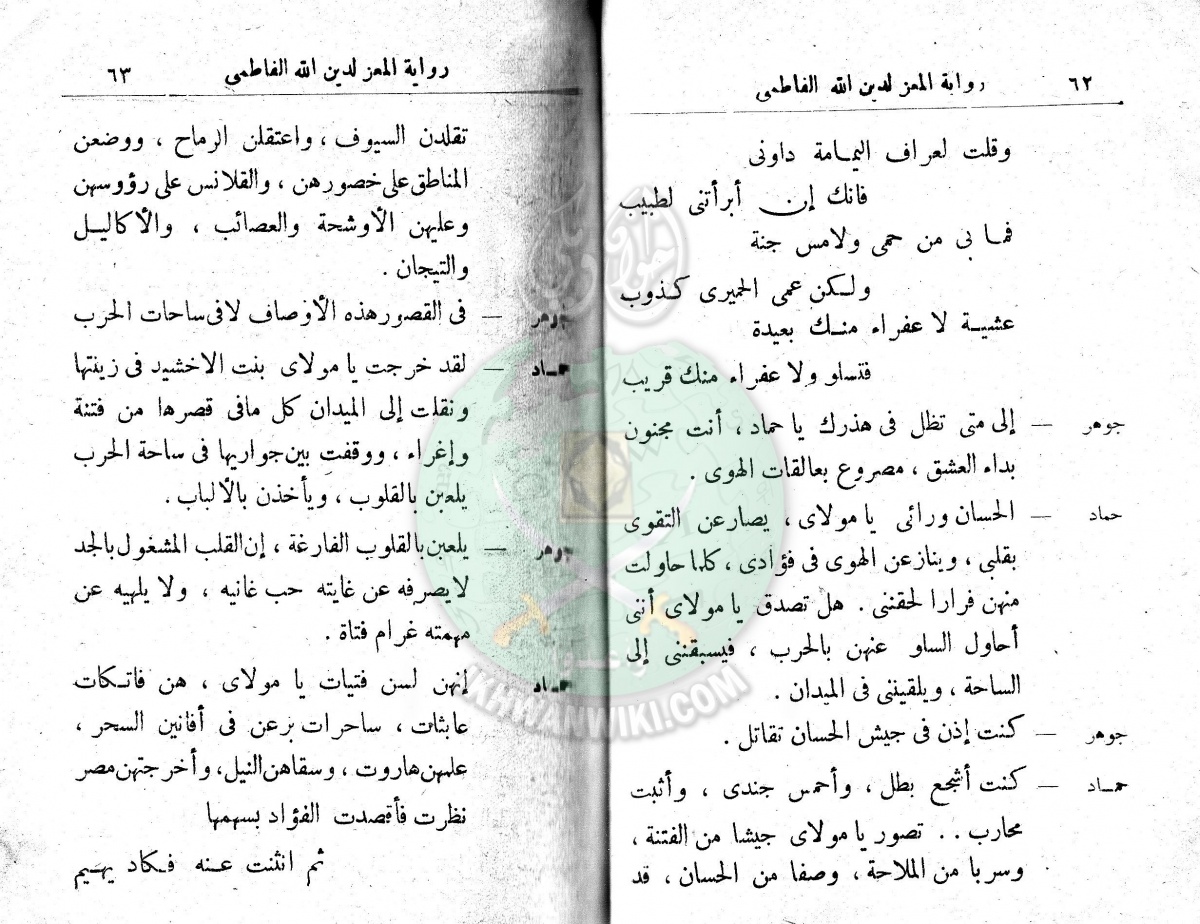 ٦٢ رواية المعز لدين الله الفاطمى
وقلت لعراف اليمـامة داونى
فانك إن أبرأتنى لطبيب
فمـا بى من حمى ولامس جنة
ولـكن عمى الحميرى كـذوب
عشيـة لا عفراء منـك بعيدة
فتسلو ولا عفراء منك قريب
جوهر — إلى متى تظل فى هذرك يا حماد ، أنت مجنون
بداء العشق ، مصروع بعالقات الهوى .
حماد — الحسان ورائى يا مولاى ، يصارعن التقوى
بقلبى ، وينازعن الهوى فى فؤادى ، كلما حاولت
منهن فرارا لحقننى . هل تصدق يا مولاى أننى
أحاول السلو عنهن بالحرب ، فيسبقننى إلى
الساحة ، ويلقيننى فى الميدان .
جوهر — كنت إذن فى جيش الحسان تقاتل .
حمـاد — كنت أشجع بطل ، وأحمس جندى ، وأثبت
محارب .. تصور يا مولاى جيشا من الفتنة ،
وسربا من الملاحة ، وصفا من الحسان ، قد
رواية المعز لدين الله الفاطمى ٦٣
تقلدن السيوف ، واعتقلن الرماح ، ووضعن
المناطق على خصورهن ، والقلانس على رؤوسهن
وعليهن الأوشحة والعصائب ، والأكاليـل
والتيجان .
جوهر — فى القصور هذه الأوصاف لا فى ساحات الحرب
حمـاد — لقد خرجت يا مولاى بنت الاخشيد فى زينتها
ونقلت إلى الميدان كل مافى قصرها من فتنة
وإغراء ، ووقفت بين جواريها فى ساحة الحرب
يلعبن بالقلوب ، ويأخذن بالألباب .
جوهر — يلعبن بالقلوب الفارغة ، إن القلب المشغول بالجد
لايصرفه عن غايته حب غانيه ، ولا يلهيه عن
مهمته غرام فتاة .
حمـاد — إنهن لسن فتيات يا مولاى ، هن فاتـكات
عابثات ، ساحرات برعن فى أفانين السحر ،
علمهن هاروت ، وسقاهن النيل، وأخرجتهن مصر
نظرت فأقصدت الفؤاد بسهمها
ثم انثنت عـنه فـكاد يهـيم
IKHWANWIKI.COM